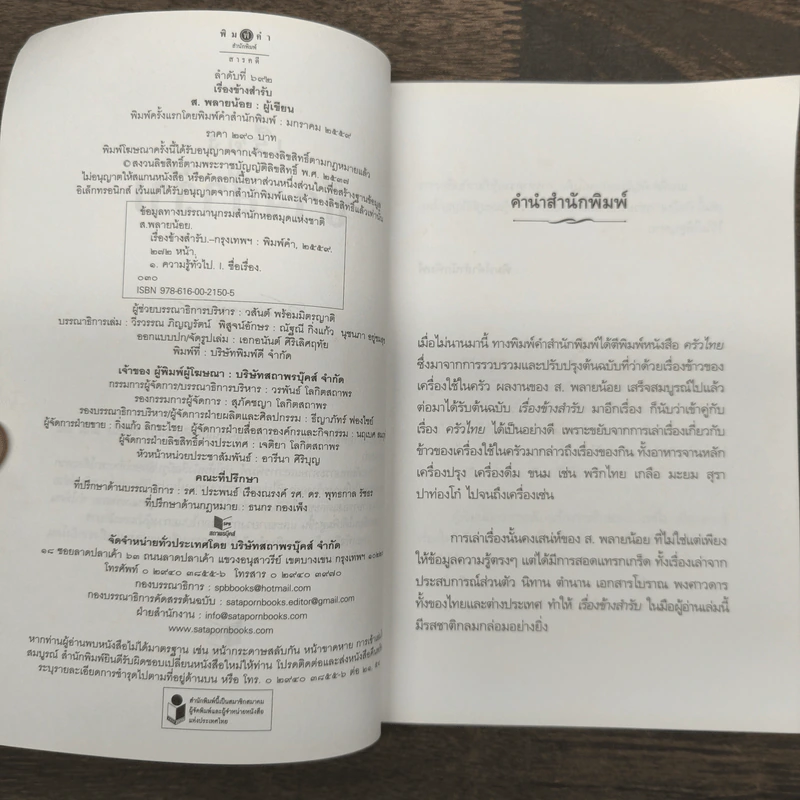 พิมพ์คำ
สำนักพิมพ์
สารคดี
ลำดับที่ ๖๙๒
เรื่องข้างสำรับ
ส. พลายน้อย : ผู้เขียน
พิมพ์ครั้งแรกโดยพิมพ์คำสำนักพิมพ์ : มกราคม ๒๕๕๙
ราคา ๒๙๐ บาท
พิมพ์โฆษณาครั้งนี้ได้รับอนุญาตจากเจ้าของลิขสิทธิ์ตามกฎหมายแล้ว
© สงวนลิขสิทธิ์ตามพระราชบัญญัติลิขสิทธิ์ พ.ศ. ๒๕๓๗
ไม่อนุญาตให้สแกนหนังสือ หรือคัดลอกเนื้อหาส่วนหนึ่งส่วนใดเพื่อสร้างฐานข้อมูล
อิเล็กทรอนิกส์ เว้นแต่ได้รับอนุญาตจากสำนักพิมพ์และเจ้าของลิขสิทธิ์แล้วเท่านั้น
ข้อมูลทางบรรณานุกรมสำนักหอสมุดแห่งชาติ
ส.พลายน้อย.
เรื่องข้างสำรับ.--กรุงเทพฯ : พิมพ์คำ, ๒๕๕๙.
๒๗๒ หน้า.
๑. ความรู้ทั่วไป. I. ชื่อเรื่อง.
๐๓๐
ISBN 978-616-00-2150-5
ผู้ช่วยบรรณาธิการบริหาร : วสันต์ พร้อมมิตรญาติ
บรรณาธิการเล่ม : วีรวรรณ ภิญญรัตน์ พิสูจน์อักษร : ณัฐณี กิ่งแก้ว นุชนภา อยู่ชมสุข
ออกแบบปก/จัดรูปเล่ม : เอกอนันต์ ศิริเลิศฤทัย
พิมพ์ที่ : บริษัทพิมพ์ดี จำกัด
เจ้าของ ผู้พิมพ์ผู้โฆษณา : บริษัทสถาพรบุ๊คส์ จำกัด
กรรมการผู้จัดการ/บรรณาธิการบริหาร : วรพันธ์ โลกิตสถาพร
รองกรรมการผู้จัดการ : สุภัคชญา โลกิตสถาพร
รองบรรณาธิการบริหาร/ผู้จัดการฝ่ายผลิตและศิลปกรรม : ธีญาภัทร์ ฟองไชย์
ผู้จัดการฝ่ายขาย : กิ่งแก้ว ลิกขะไชย ผู้จัดการฝ่ายสื่อสารองค์กรและกิจกรรม : นฤเบศ
ผู้จัดการฝ่ายลิขสิทธิ์ต่างประเทศ : เจติยา โลกิตสถาพร
หัวหน้าหน่วยประชาสัมพันธ์ : อารีนา ศิริบุญ
คณะที่ปรึกษา
ที่ปรึกษาด้านบรรณาธิการ : รศ. ประพนธ์ เรืองณรงค์ รศ. ดร. พุทธกาล รัชธร
ที่ปรึกษาด้านกฎหมาย : ธนกร ทองเพ็ง
สถาพรบุ๊คส์
จัดจำหน่ายทั่วประเทศโดย บริษัทสถาพรบุ๊คส์ จำกัด
๑๘ ซอยลาดปลาเค้า ๖๓ ถนนลาดปลาเค้า แขวงอนุสาวรีย์ เขตบางเขน กรุงเทพฯ ๑๐๒๒๐
โทรศัพท์ ๐ ๒๙๔๐ ๓๘๕๕-๖ โทรสาร ๐ ๒๙๔๐ ๓๙๗๐
กองบรรณาธิการ : spbbooks@hotmail.com
กองบรรณาธิการคัดสรรต้นฉบับ : satapornbooks.editor@gmail.com
ฝ่ายสำนักงาน : info@satapornbooks.com
www.satapornbooks.com
หากท่านผู้อ่านพบหนังสือไม่ได้มาตรฐาน เช่น หน้ากระดาษสลับกัน หน้าขาดหาย การเข้าเล่มไม่
สมบูรณ์ สำนักพิมพ์ยินดีรับผิดชอบเปลี่ยนหนังสือใหม่ให้ท่าน โปรดติดต่อและส่งหนังสือคืนพร้อม
ระบุรายละเอียดการชำรุดไปตามที่อยู่ด้านบน หรือ โทร. ๐ ๒๙๔๐ ๓๘๕๕-๖ ต่อ ๒๑, ๕๑
สำนักพิมพ์นี้เป็นสมาชิกสมาคม
ผู้จัดพิมพ์และผู้จำหน่ายหนังสือ
แห่งประเทศไทย
คำนำสำนักพิมพ์
เมื่อไม่นานมานี้ ทางพิมพ์คำสำนักพิมพ์ได้ตีพิมพ์หนังสือ ครัวไทย
ซึ่งมาจากการรวบรวมและปรับปรุงต้นฉบับที่ว่าด้วยเรื่องข้าวของ
เครื่องใช้ในครัว ผลงานของ ส. พลายน้อย เสร็จสมบูรณ์ไปแล้ว
ต่อมาได้รับต้นฉบับ เรื่องข้างสำรับ มาอีกเรื่อง ก็นับว่าเข้าคู่กับ
เรื่อง ครัวไทย ได้เป็นอย่างดี เพราะขยับจากการเล่าเรื่องเกี่ยวกับ
ข้าวของเครื่องใช้ในครัวมากล่าวถึงเรื่องของกิน ทั้งอาหารจานหลัก
เครื่องปรุง เครื่องดื่ม ขนม เช่น พริกไทย เกลือ มะยม สุรา
ปาท่องโก๋ ไปจนถึงเครื่องเซ่น
การเล่าเรื่องนั้นคงเสน่ห์ของ ส. พลายน้อย ที่ไม่ใช่แต่เพียง
ให้ข้อมูลความรู้ตรงๆ แต่ได้มีการสอดแทรกเกร็ด ทั้งเรื่องเล่าจาก
ประสบการณ์ส่วนตัว นิทาน ตำนาน เอกสารโบราณ พงศาวดาร
ทั้งของไทยและต่างประเทศ ทำให้ เรื่องข้างสำรับ ในมือผู้อ่านเล่มนี้
มีรสชาติกลมกล่อมอย่างยิ่ง